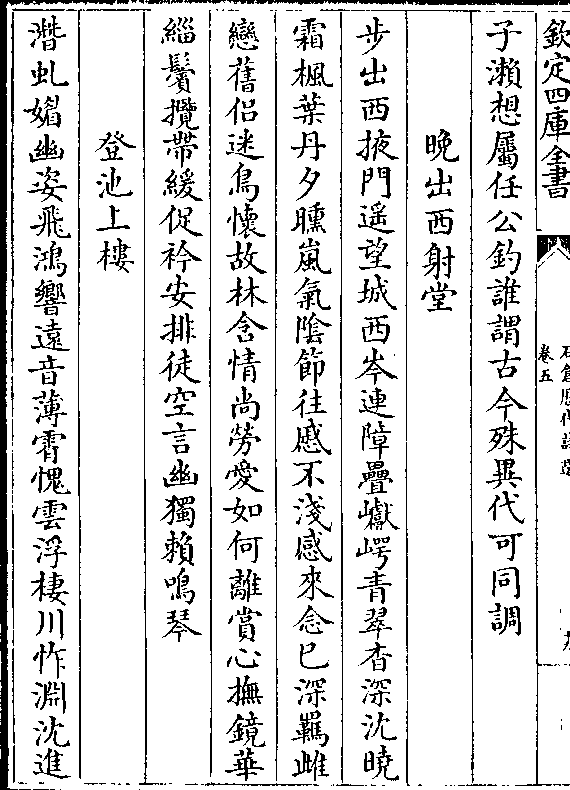 欽定四庫全書
卷五
子瀨想屬任公釣誰謂古今殊異代可同調
晚出西射堂
步出西掖門遥望城西岑連障疊巘崿青翠杳深沈曉
霜楓葉丹夕曛嵐氣陰節往慼不淺感來念已深羈雌
戀舊侣迷鳥懷故林含情尚勞愛如何離賞心撫鏡華
緇鬢攬帶緩促衿安排徒空言幽獨賴鳴琴
登池上樓
潛虬媚幽姿飛鴻響遠音薄霄愧雲浮棲川怍淵沈進